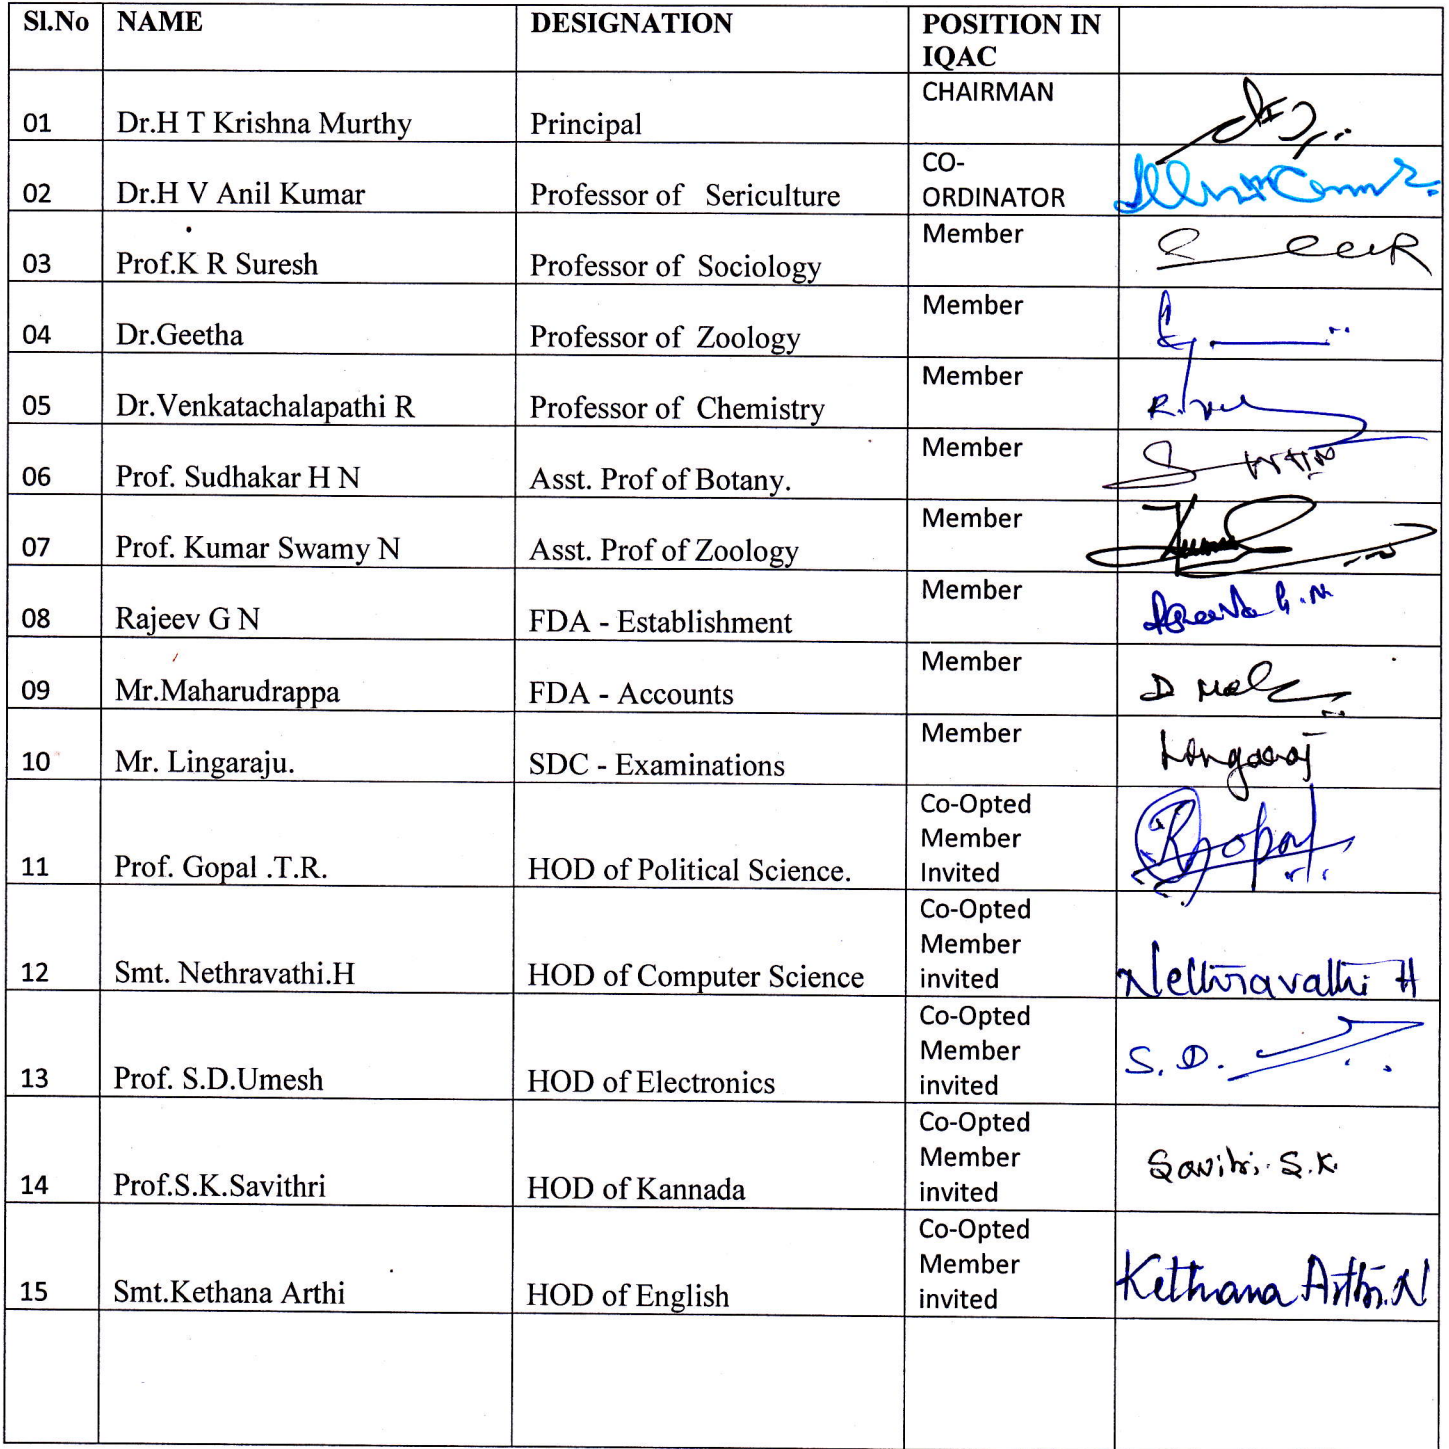 Sl.No NAME DESIGNATION POSITION IN
IQAC
01 Dr.H T Krishna Murthy Principal CHAIRMAN
02 Dr.H V Anil Kumar Professor of Sericulture CO-
ORDINATOR
03 Prof.K R Suresh Professor of Sociology Member
04 Dr.Geetha Professor of Zoology Member
05 Dr.Venkatachalapathi R Professor of Chemistry Member
06 Prof. Sudhakar H N Asst. Prof of Botany. Member
07 Prof. Kumar Swamy N Asst. Prof of Zoology Member
08 Rajeev G N FDA - Establishment Member
09 Mr.Maharudrappa FDA - Accounts Member
10 Mr. Lingaraju. SDC - Examinations Member
Co-Opted
Member
11 Prof. Gopal .T.R. HOD of Political Science. Invited
Co-Opted
Member
12 Smt. Nethravathi.H HOD of Computer Science invited Nethravathi H
Co-Opted
Member
13 Prof. S.D.Umesh HOD of Electronics invited S. D.
Co-Opted
Member
14 Prof.S.K.Savithri HOD of Kannada invited Savitri. S.K.
Co-Opted
Member
15 Smt.Kethana Arthi HOD of English invited Kethana Arthi.N